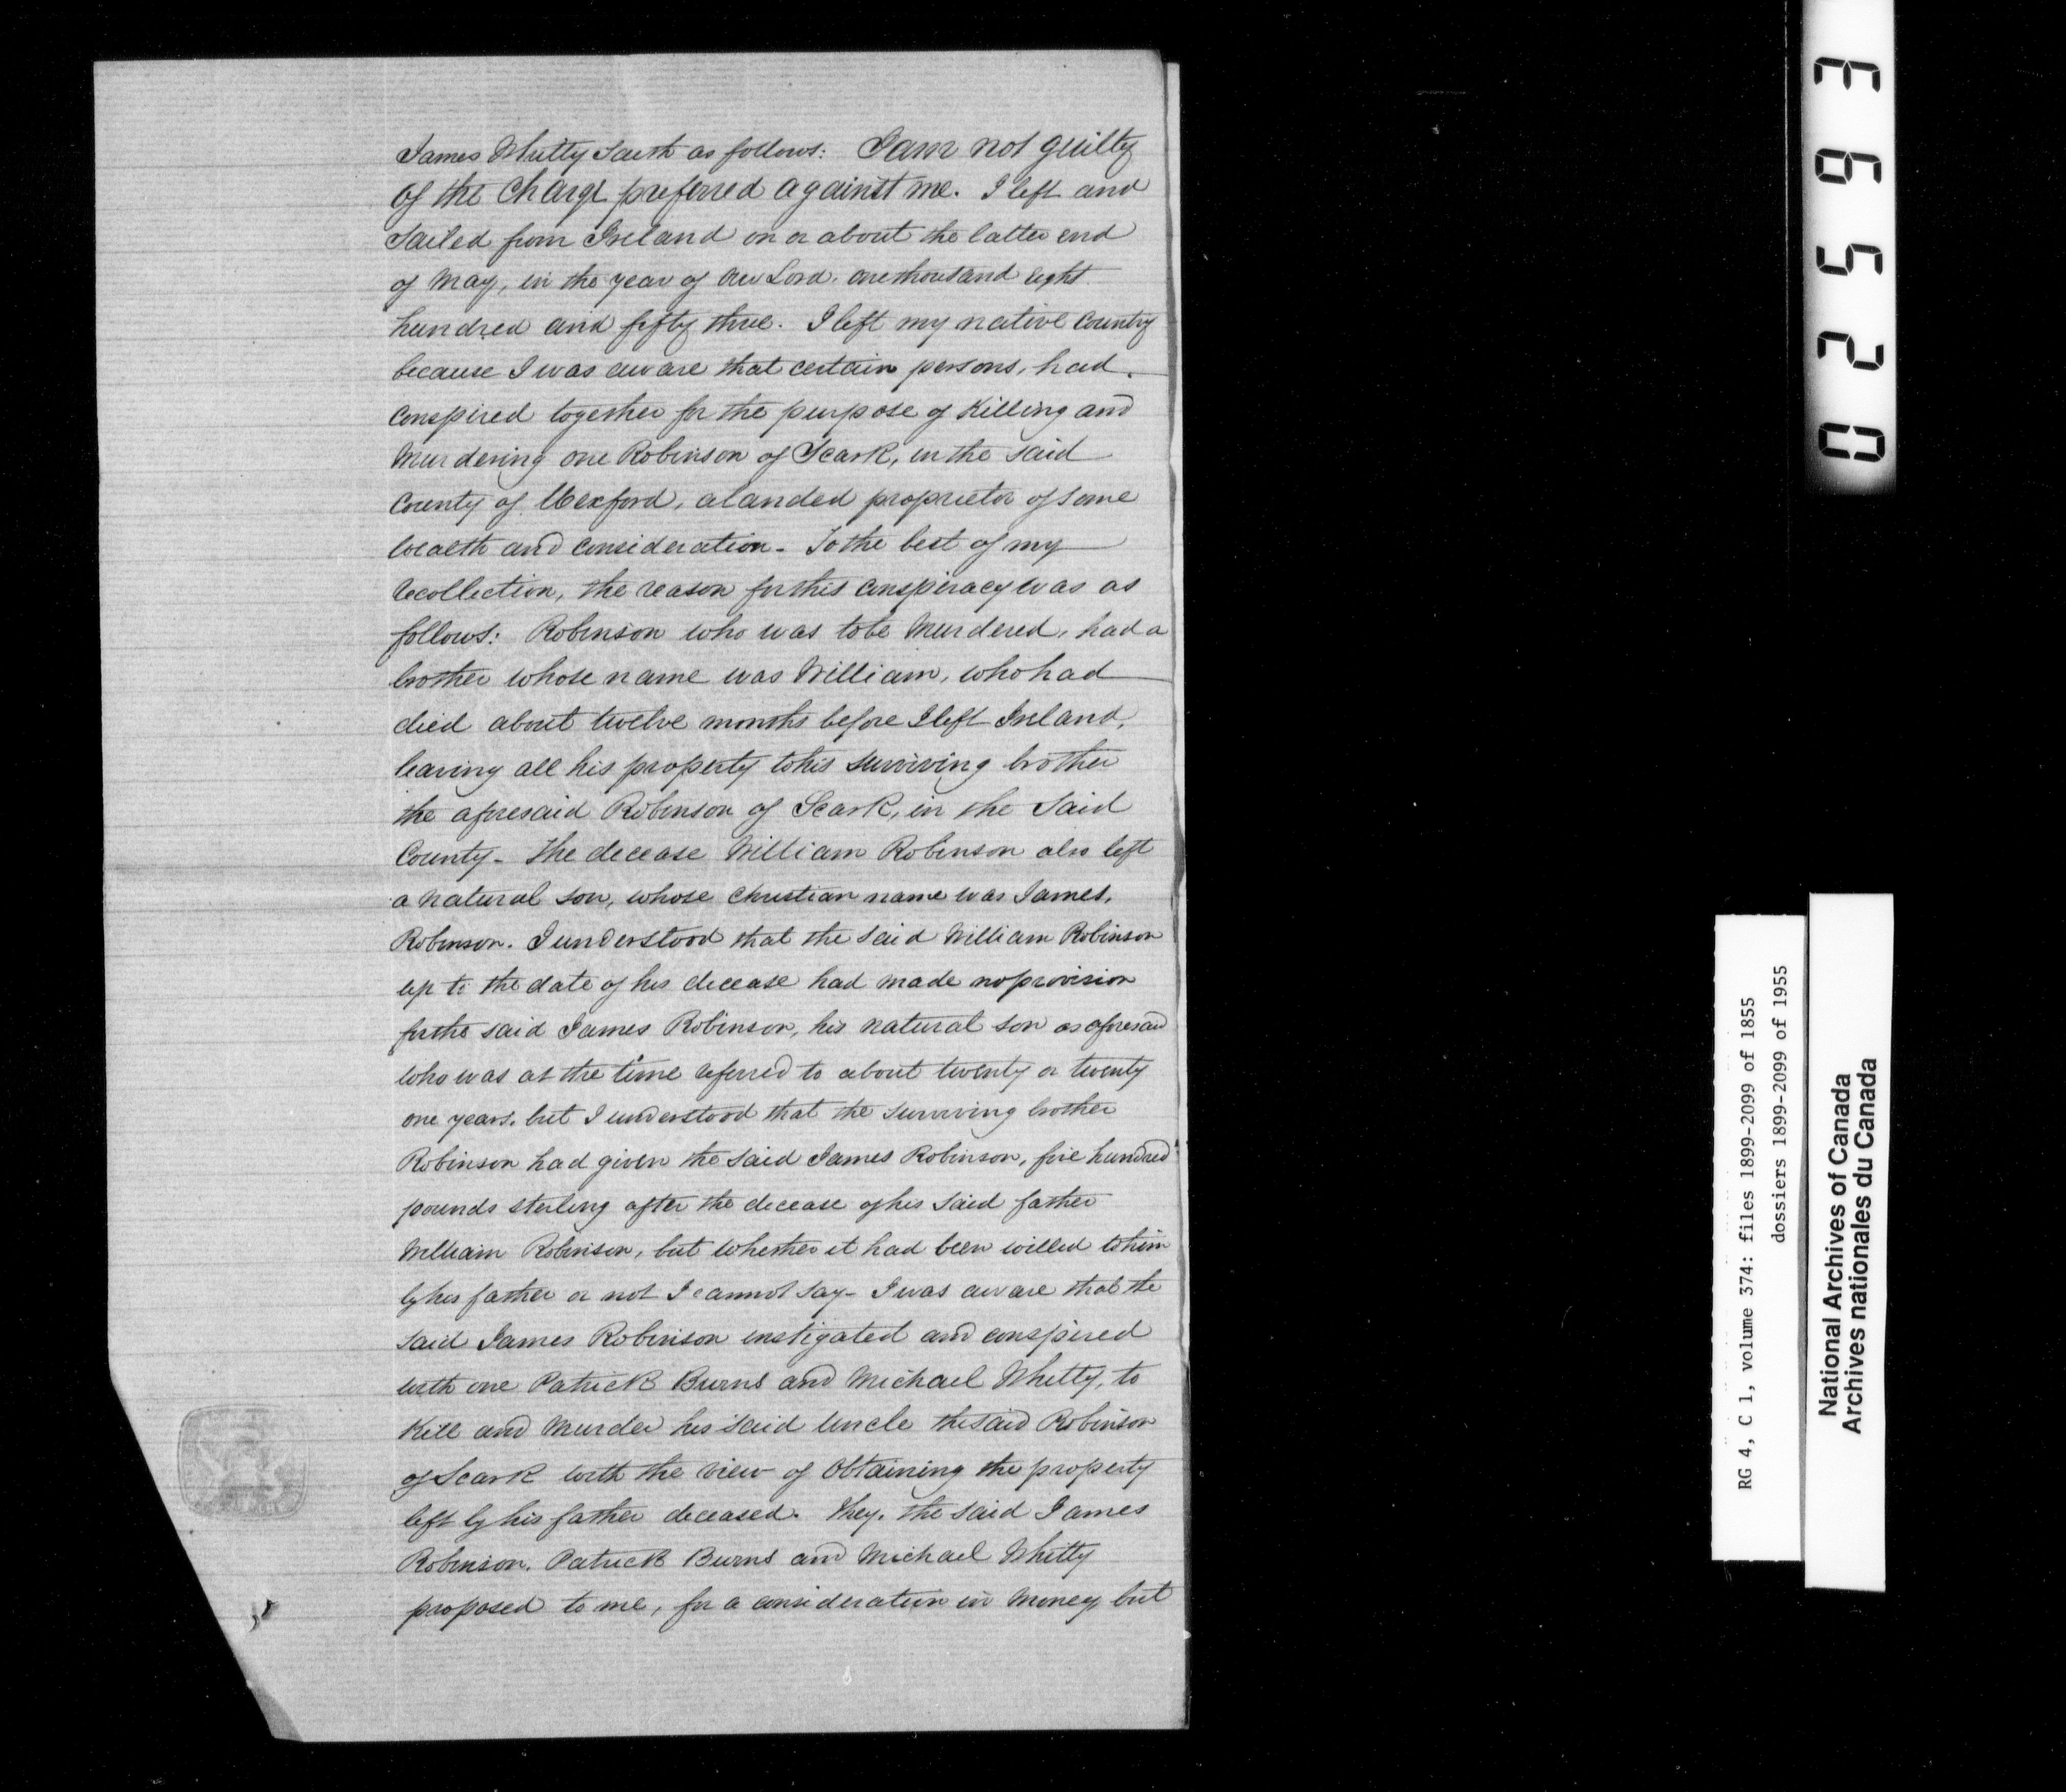 James Whitty Saith as follows: I am not guilty
of the Charge preferred against me. I left and
Sailed from Ireland on or about the latter end
of May, in the year of Our Lord, one thousand eight
hundred and fifty three. I left my native Country
because I was aware that certain persons, had
Conspired together for the purpose of Killing and
Murdering one Robinson of Scark, in the said
County of Wexford, a landed proprietor of some
wealth and consideration - To the best of my
recollection, the reason for this conspiracy was as
follows: Robinson who was to be Murdered, had a
brother whose name was William, who had
died about twelve months before I left Ireland,
leaving all his property to his surviving brother
the aforesaid Robinson of Scark, in the Said
County - The decease William Robinson also left
a natural son, whose Christian name was James,
Robinson. I understood that the said William Robinson
up to the date of his decease had made no provision
for the said James Robinson, his natural son as aforesaid
who was at the time referred to about twenty or twenty
one years, but I understood that the surviving brother
Robinson had given the said James Robinson, five hundred
pounds sterling after the decease of his said father
William Robinson, but whether it had been willed to him
by his father or not I cannot say - I was aware that the
said James Robinson instigated and conspired
with one Patrick Burns and Michael Whitty, to
Kill and Murder his said Uncle the said Robinson
of Scark with the view of Obtaining the property
left by his father deceased. They, the said James
Robinson, Patrick Burns and Michael Whitty
proposed to me, for a consideration in Money, but
025693
RG 4, C 1, volume 374: files 1899-2099 of 1855
dossiers 1899-2099 of 1955
National Archives of Canada
Archives nationales du Canada